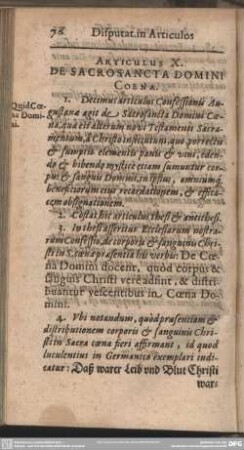 78 Disputat. in Articulos
ARTICULUS X.
DE SACROSANCTA DOMINI
COENA.
Quid Cœ-
na Domi-
ni.
1. Decimus articulus Confessionis Au-
gustanæ agit de Sacrosancta Domini Cœ-
na, quæ est alterum novi Testamenti Sacra-
mentum, à Christo institutum, quo porrectis
& sumptis elementis panis & vini, eden-
do & bibendo mysticè etiam sumuntur cor-
pus & sanguis Domini, in ipsius, omnium
beneficiorum eius recordationem, & effica-
cem obsignationem.
2. Constat hic articulus thesi & antithesi.
3. In thesi asseritur Ecclesiarum nostra-
rum Confessio, de corporis & sanguinis Chri-
sti in S. cœna præsentia his verbis: De Cœ-
na Domini docent, quòd corpus &
sanguis Christi verè adsint, & distri-
buantur vescentibus in Cœna Do-
mini.
4. Vbi notandum, quòd præsentiam &
distributionem corporis & sanguinis Chri-
sti in Sacra cœna fieri affirmant, id quod
luculentius in Germanico exemplari indi-
catur: Daß warer Leib vnd Blut Christi
war-